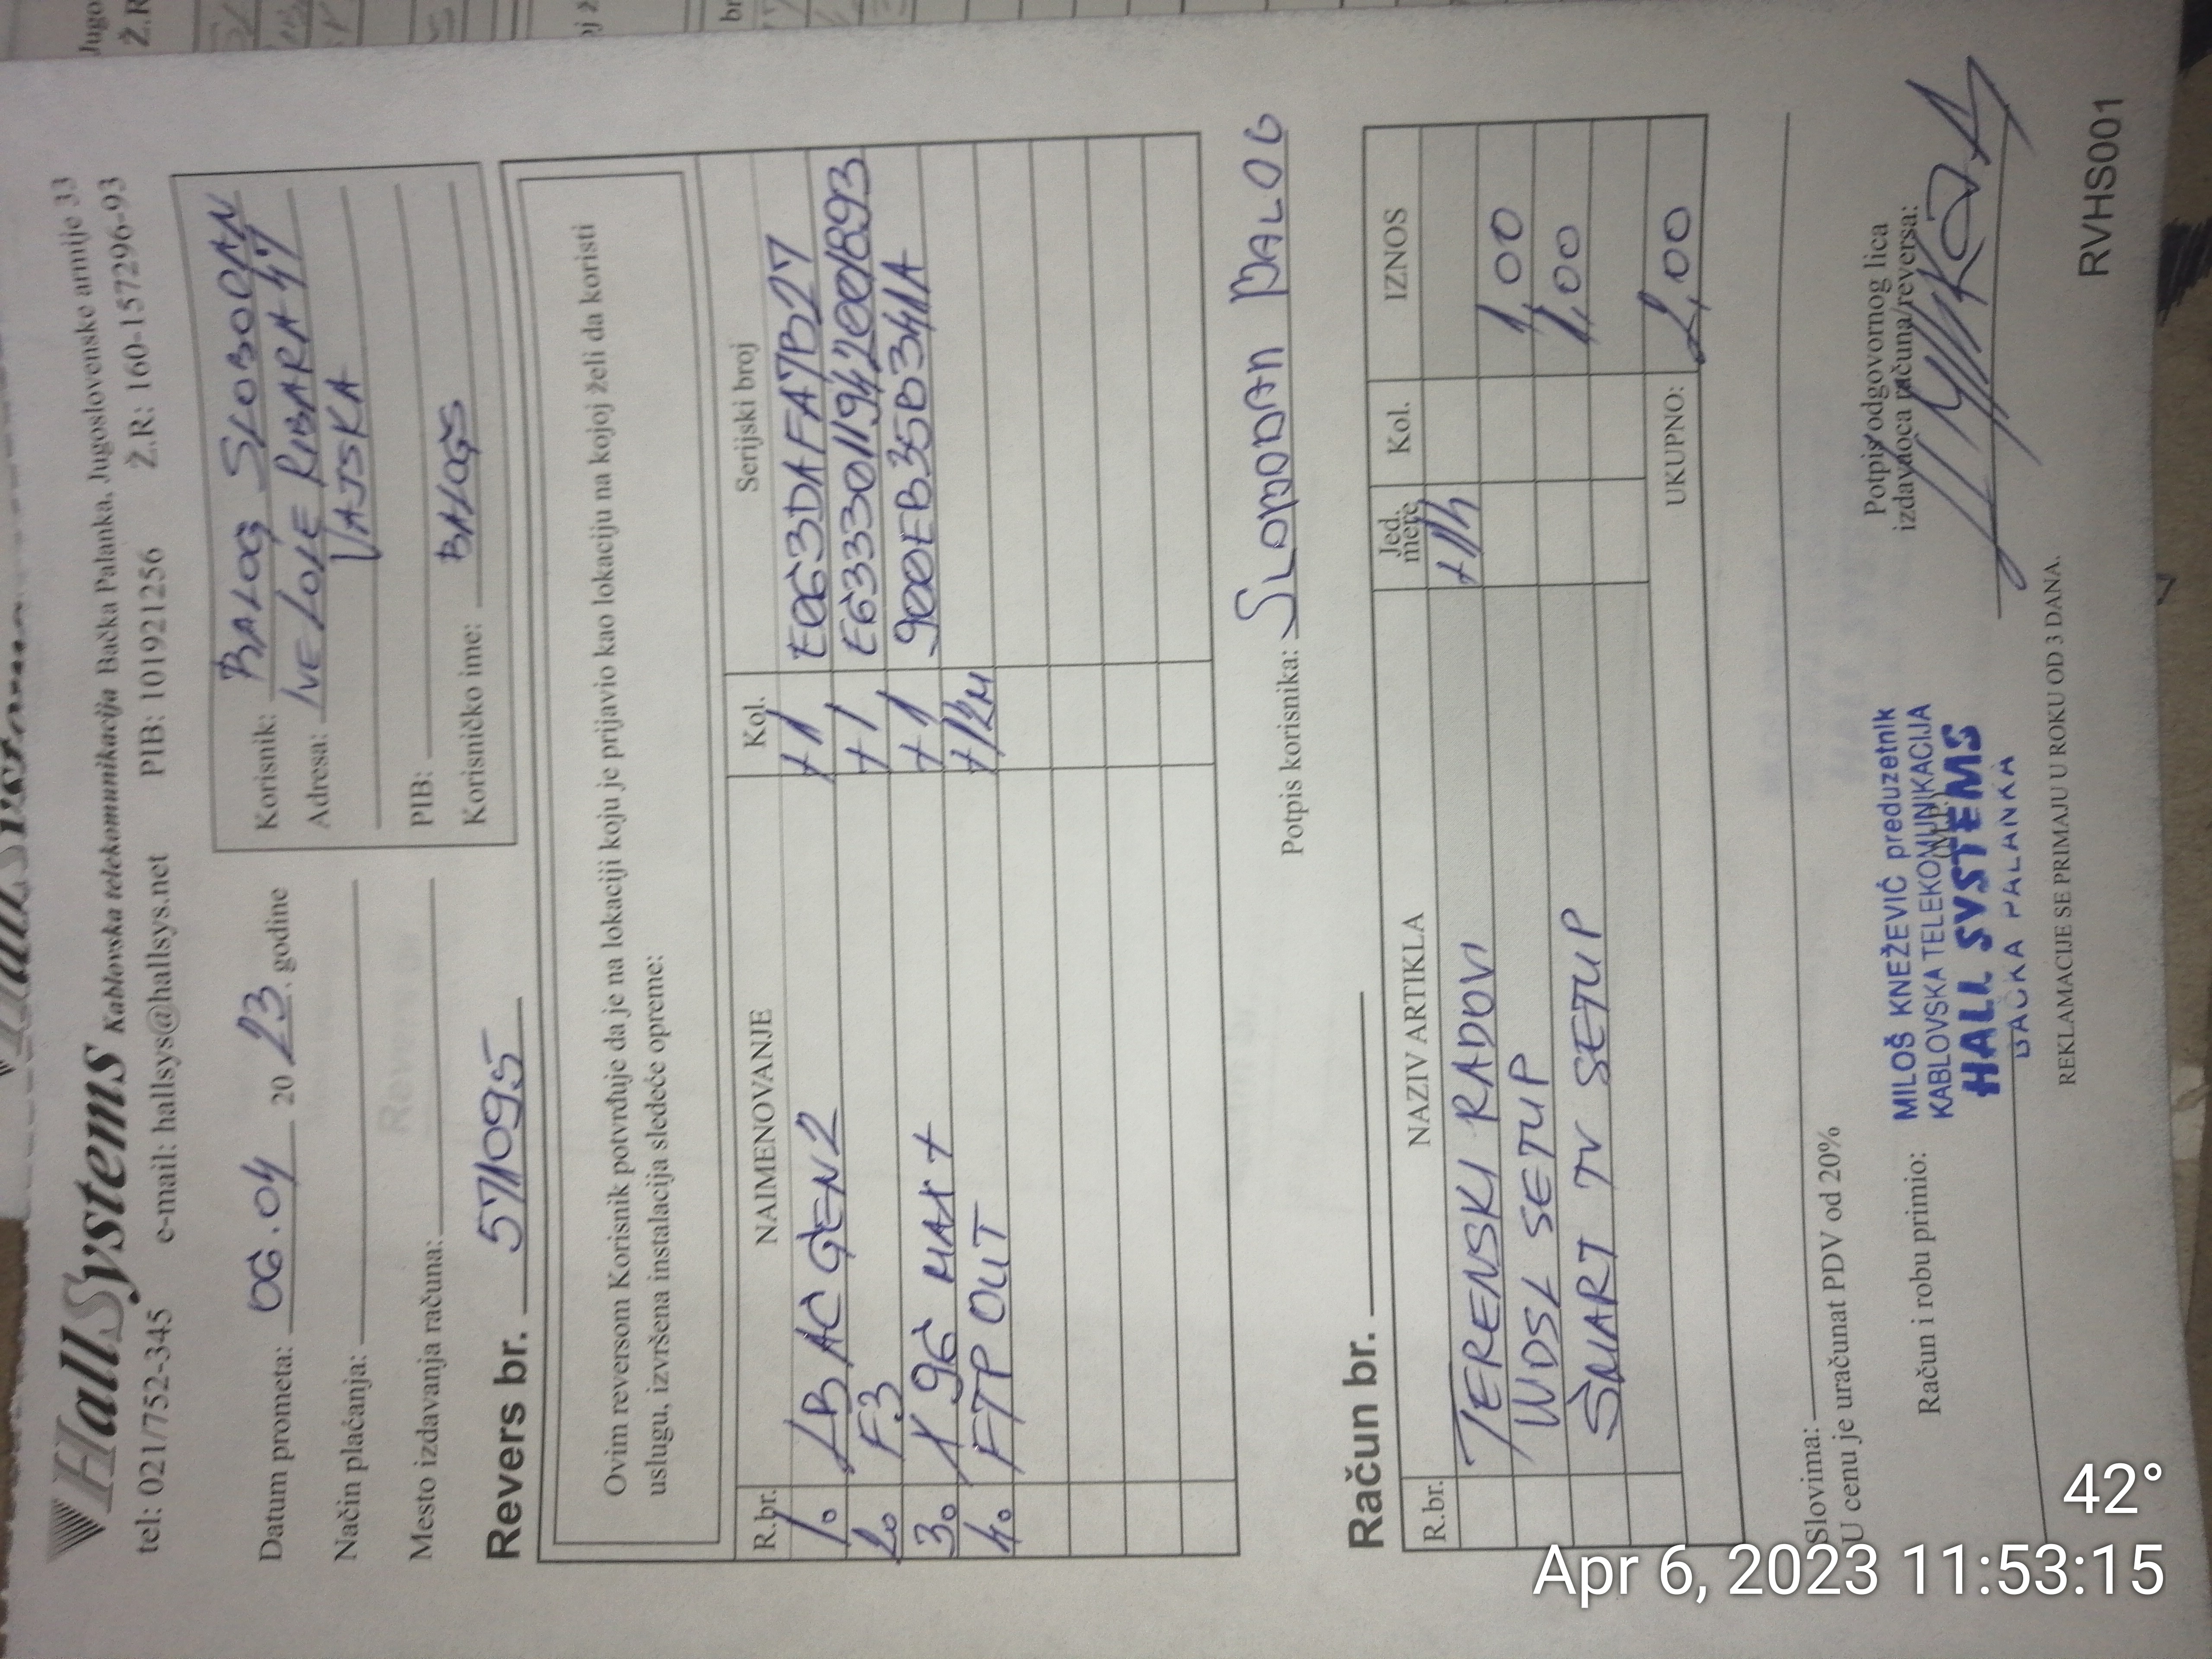 HallSystems Kablovska telekomunikacija Bačka Palanka, Jugoslovenske armije 33
tel: 021/752-345 e-mail: hallsys@hallsys.net PIB: 101921256 Ž.R: 160-157296-93
Datum prometa: 06.04 2023. godine
Način plaćanja:
Mesto izdavanja računa:
Korisnik: BALOG SLOBODAN
Adresa: IVE LOLE RIBARA 47
VAJSKA
PIB:
Korisničko ime: BALOGS
Revers br. 5711095
Ovim reversom Korisnik potvrđuje da je na lokaciji koju je prijavio kao lokaciju na kojoj želi da koristi
uslugu, izvršena instalacija sledeće opreme:
R.br. NAIMENOVANJE Kol. Serijski broj
1. LB AC GEN2 +1 E063DAFA7B27
2. F3 +1
3. X 96 MAX + +1 900EB35B341A
4. FTP OUT +12M
Potpis korisnika: SLOBODAN BALOG
Račun br.
R.br. NAZIV ARTIKLA Jed. mere Kol. IZNOS
TERENSKI RADOVI +1h
WDSL SETUP 1,00
SMART TV SETUP 1,00
UKUPNO: 2,00
Slovima:
U cenu je uračunat PDV od 20%
Račun i robu primio:
MILOŠ KNEŽEVIĆ preduzetnik
KABLOVSKA TELEKOMUNIKACIJA
HALL SYSTEMS
BAČKA PALANKA
Potpis odgovornog lica
izdavaoca računa/reversa:
REKLAMACIJE SE PRIMAJU U ROKU OD 3 DANA.
RVHS001
42°
Apr 6, 2023 11:53:15